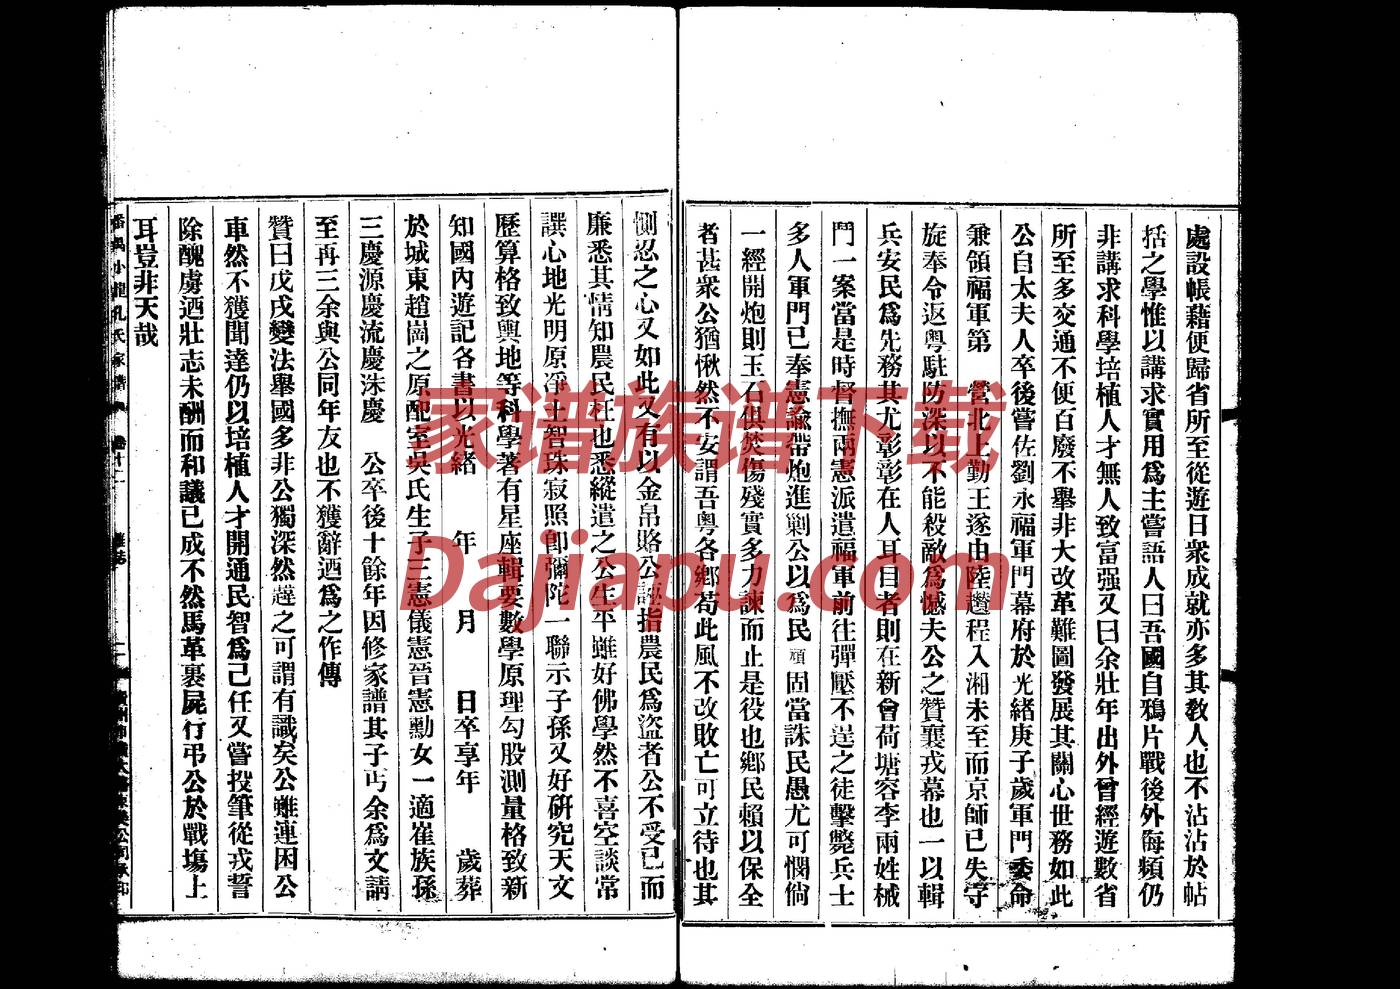 處設帳藉便歸省所至從遊日衆成就亦多其敎人也不沾沾於帖
括之學惟以講求實用爲主嘗語人曰吾國自鴉片戰後外侮頻仍
非講求科學培植人才無人致富强又曰余壯年出外曾經遊數省
所至多交通不便百廢不舉非大改革難圖發展其關心世務如此
公自太夫人卒後嘗佐劉永福軍門幕府於光緖庚子歲軍門委命
兼領福軍第　營北上勤王遂由陸趲程入湘未至而京師已失守
旋奉令返粤駐防深以不能殺敵爲憾夫公之贊襄戎幕也一以輯
兵安民爲先務其尤彰彰在人耳目者則在新會荷塘容李兩姓械
鬥一案當是時督撫兩憲派遣福軍前往彈壓不逞之徒擊斃兵士
多人軍門已奉憲諭帶炮進剿公以爲民頑固當誅民愚尤可憫倘
一經開炮則玉石俱焚傷殘實多力諫而止是役也鄉民賴以保全
者甚衆公猶愀然不安謂吾粤各鄉苟此風不改敗亡可立待也其
惻忍之心又如此又有以金帛賂公誣指農民爲盜者公不受已而
廉悉其情知農民枉也悉縱遣之公生平雖好佛學然不喜空談常
譔心地光明原淨土智珠寂照卽彌陀一聯示子孫又好硏究天文
歷算格致輿地等科學著有星座輯要數學原理勾股測量格致新
知國內遊記各書以光緖　年　月　日卒享年　歲葬
於城東趙崗之原配室吳氏生子三憲儀憲晉憲勳女一適崔族孫
三慶源慶流慶洙慶　公卒後十餘年因修家譜其子丐余爲文請
至再三余與公同年友也不獲辭迺爲之作傳
贊曰戊戌變法舉國多非公獨深然韙之可謂有識矣公雖連困公
車然不獲聞達仍以培植人才開通民智爲己任又嘗投筆從戎誓
除醜虜迺壯志未酬而和議已成不然馬革裹屍行弔公於戰塲上
耳豈非天哉
番禺小龍孔氏家譜　卷十二　雜誌
家谱族谱下载
Dajiapu.com